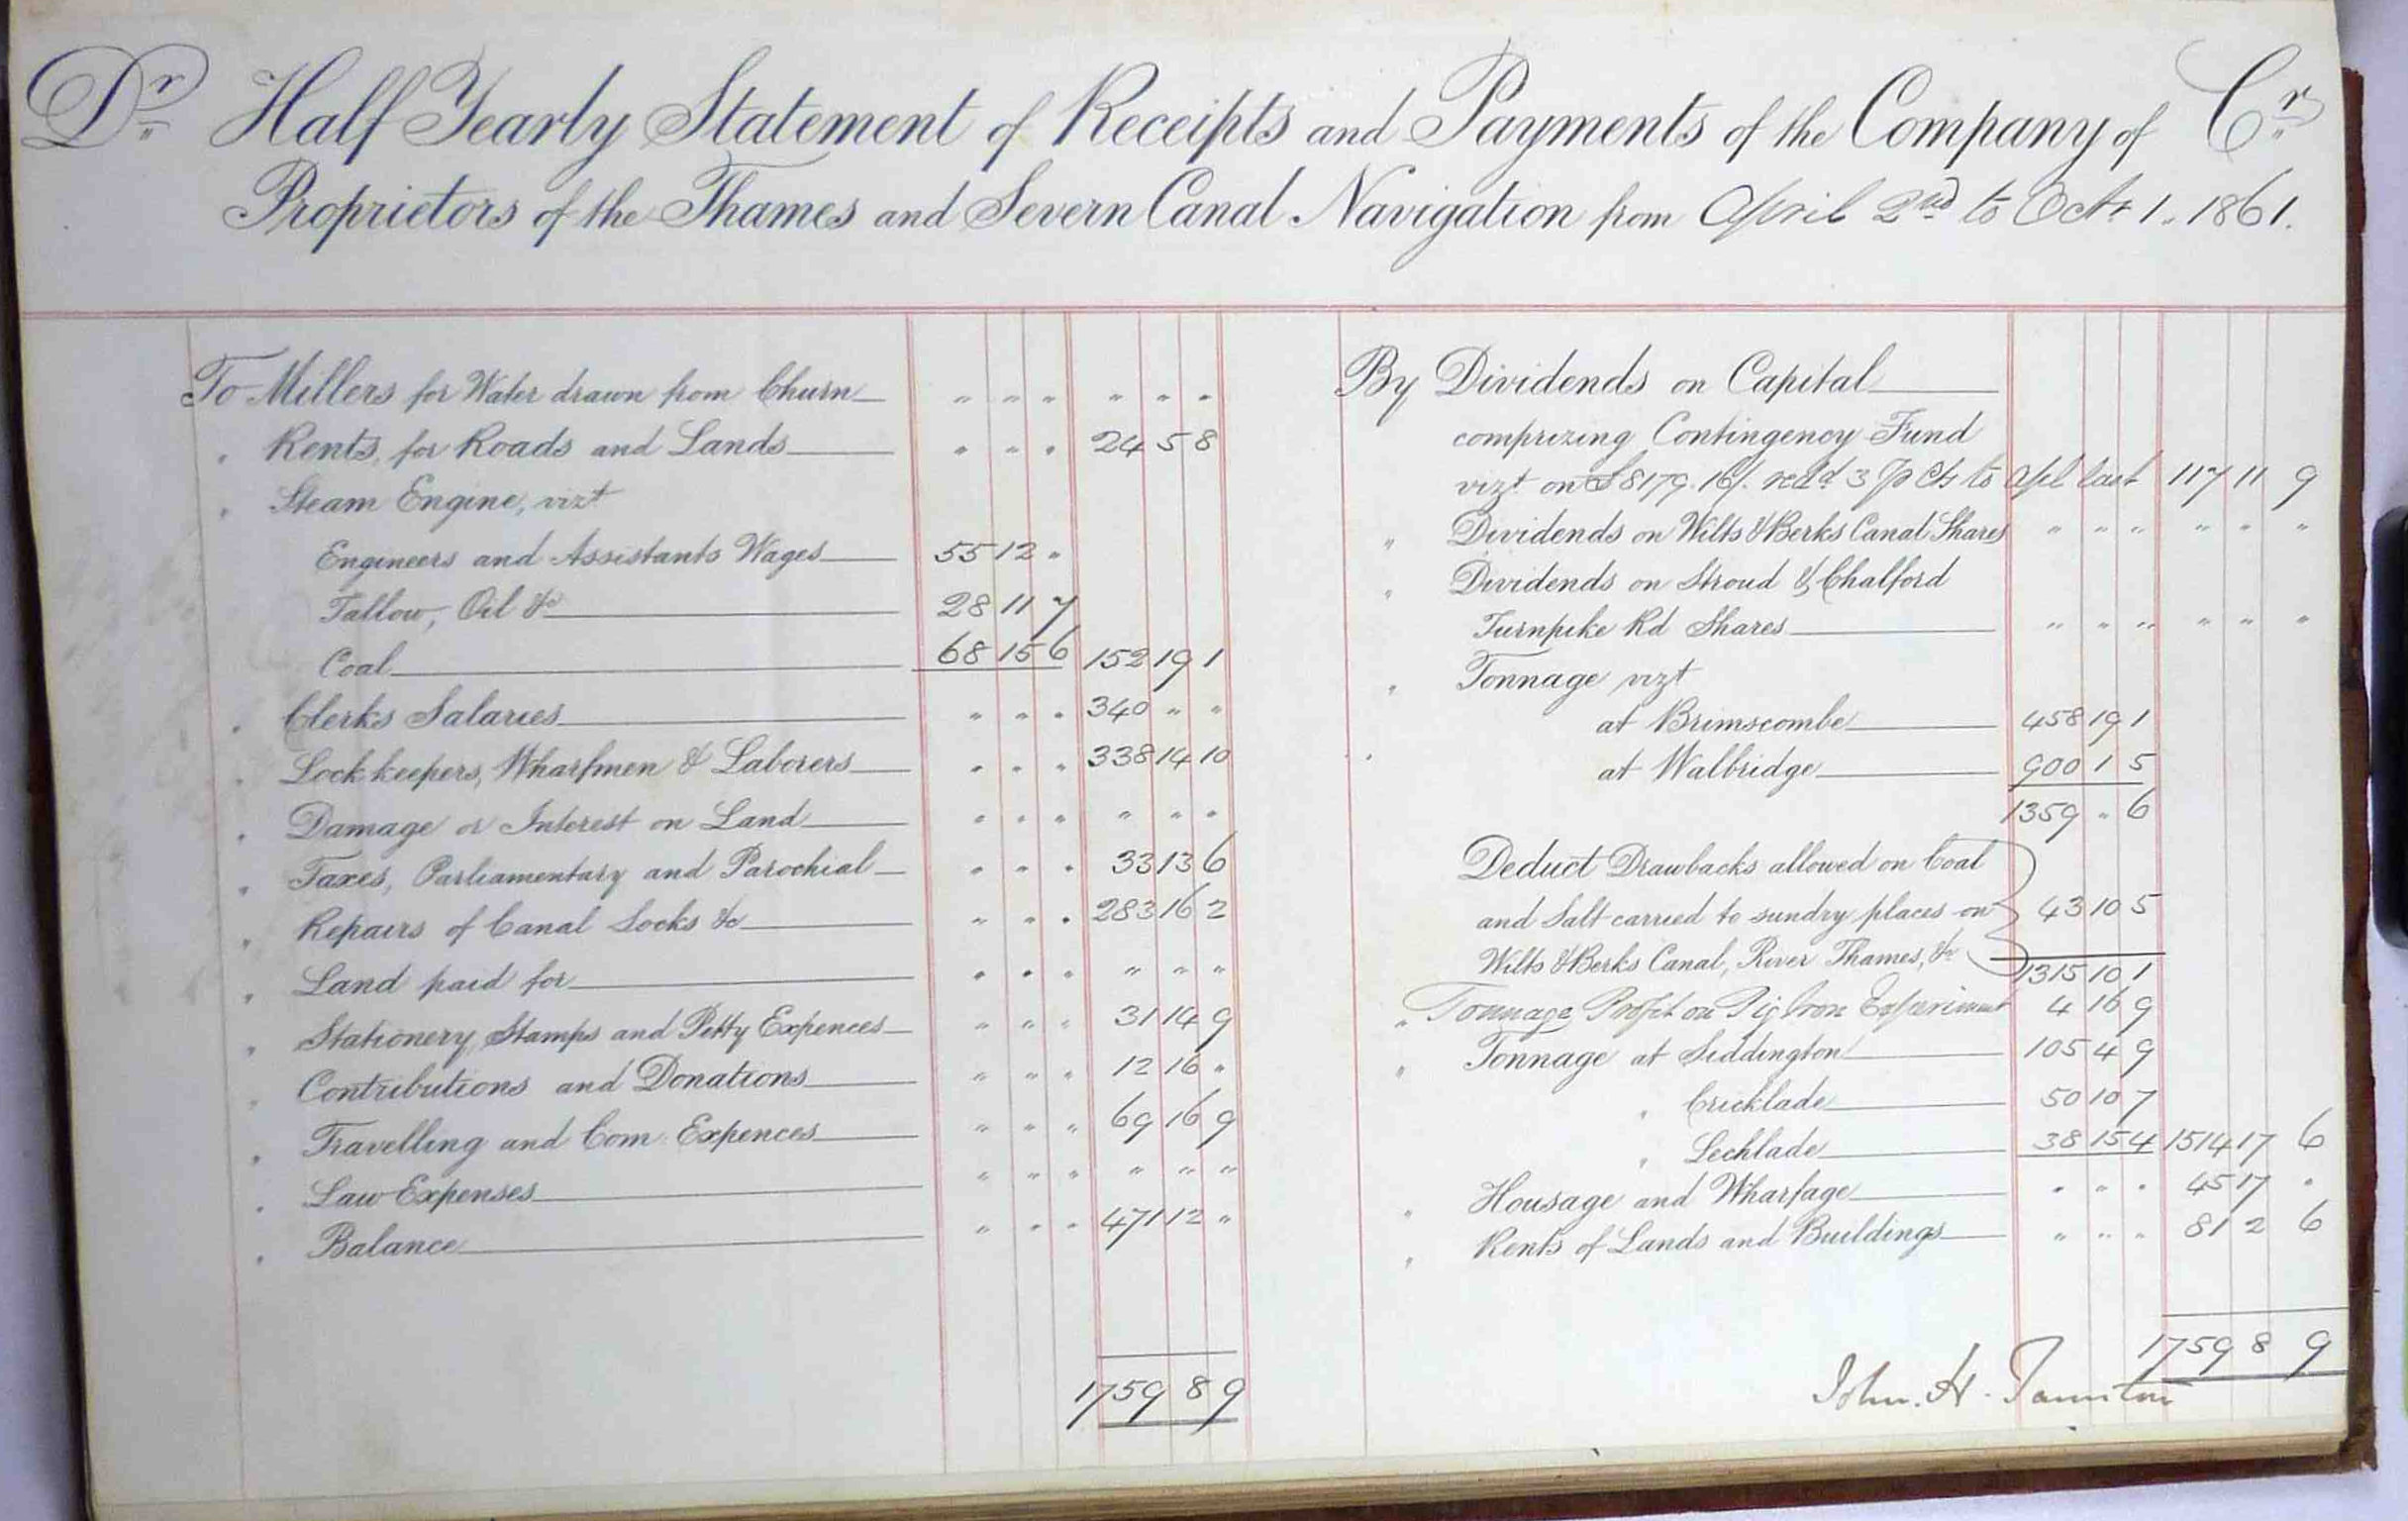 Dr Half Yearly Statement of Receipts and Payments of the Company of Cr
Proprietors of the Thames and Severn Canal Navigation from April 2nd to Oct 1. 1861.
To Millers for Water drawn from Churn " " " " " "
" Rents, for Roads and Lands " " " 24 5 8
" Steam Engine, vizt
Engineers and Assistants Wages 55 12 "
Tallow, Oil &c 28 11 7
Coal 68 15 6 152 19 1
" Clerks Salaries " " " 340 " "
" Lock keepers, Wharfmen & Laborers " " " 338 14 10
" Damage or Interest on Land " " " " " "
" Taxes, Parliamentary and Parochial " " " 33 13 6
" Repairs of Canal Locks &c " " " 283 16 2
" Land paid for " " " " " "
" Stationery, Stamps and Petty Expences " " " 31 14 9
" Contributions and Donations " " " 12 16 "
" Travelling and Com Expences " " " 69 16 9
" Law Expenses " " " " " "
" Balance " " " 471 12 "
1759 8 9
By Dividends on Capital
comprizing Contingency Fund
vizt on £8179. 16/. redd 3 p Cts to Apl last 117 11 9
" Dividends on Wilts & Berks Canal Shares " " " " " "
" Dividends on Stroud & Chalford
Turnpike Rd Shares " " " " " "
" Tonnage vizt
at Brimscombe 458 19 1
at Walbridge 900 1 5
1359 " 6
Deduct Drawbacks allowed on Coal
and Salt carried to sundry places on 43 10 5
Wilts & Berks Canal, River Thames, &c
1315 10 1
" Tonnage, Profit on Pig Iron Experiment 4 16 9
" Tonnage at Siddington 105 4 9
" Cricklade 50 10 7
" Lechlade 38 15 4 1514 17 6
" Housage and Wharfage " " " 45 17 "
" Rents of Lands and Buildings " " " 81 2 6
1759 8 9
John. H. Taunton